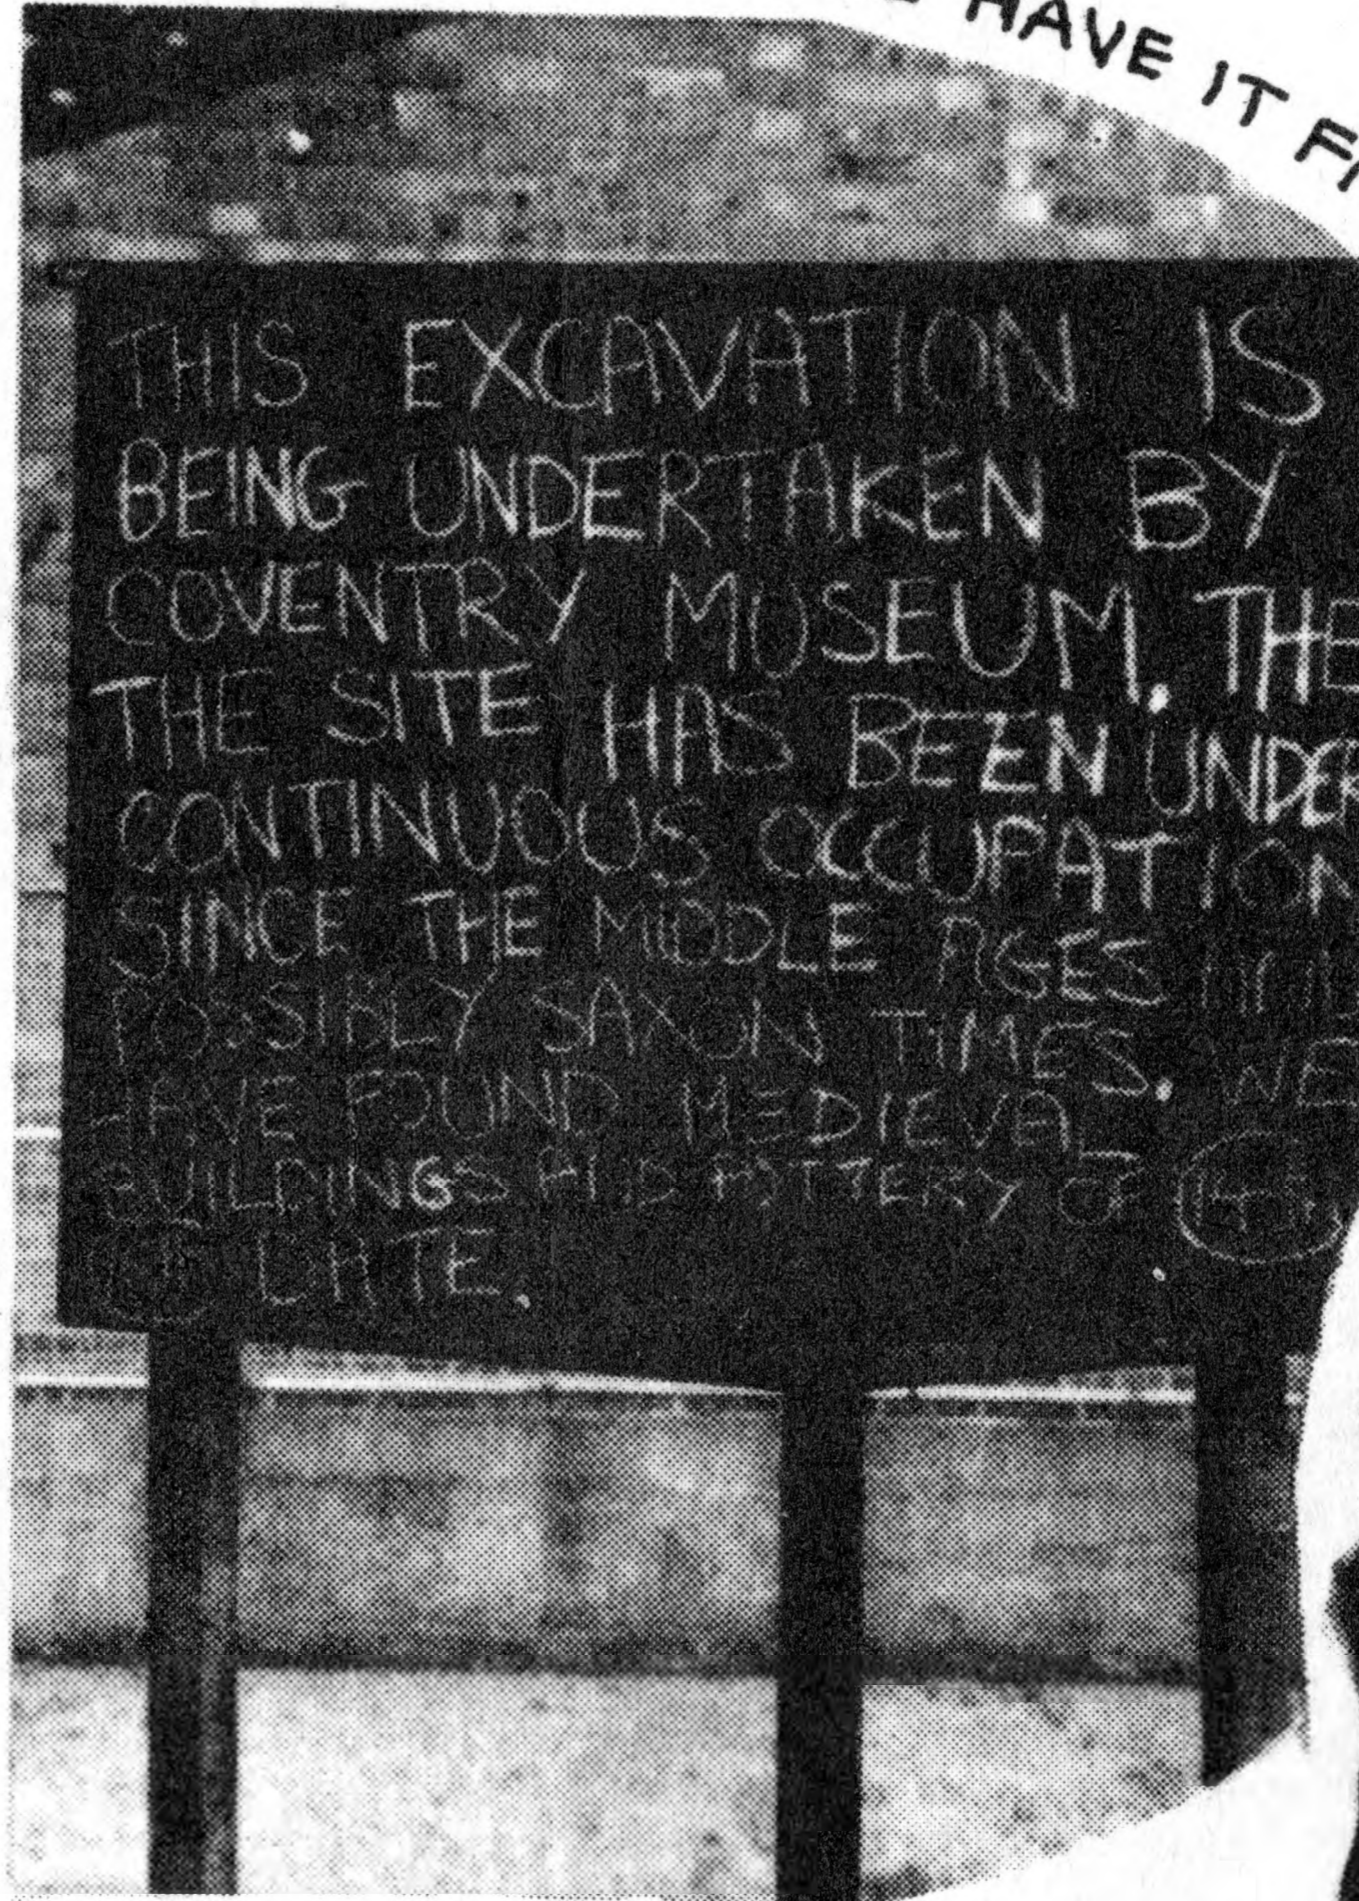 HAVE IT
THIS EXCAVATION IS
BEING UNDERTAKEN BY
COVENTRY MUSEUM. THE
THE SITE HAS BEEN UNDER
CONTINUOUS OCCUPATION
SINCE THE MIDDLE AGES
POSSIBLY SAXON TIMES. WE
HAVE FOUND MEDIEVAL
BUILDINGS AND POTTERY OF
DATE.